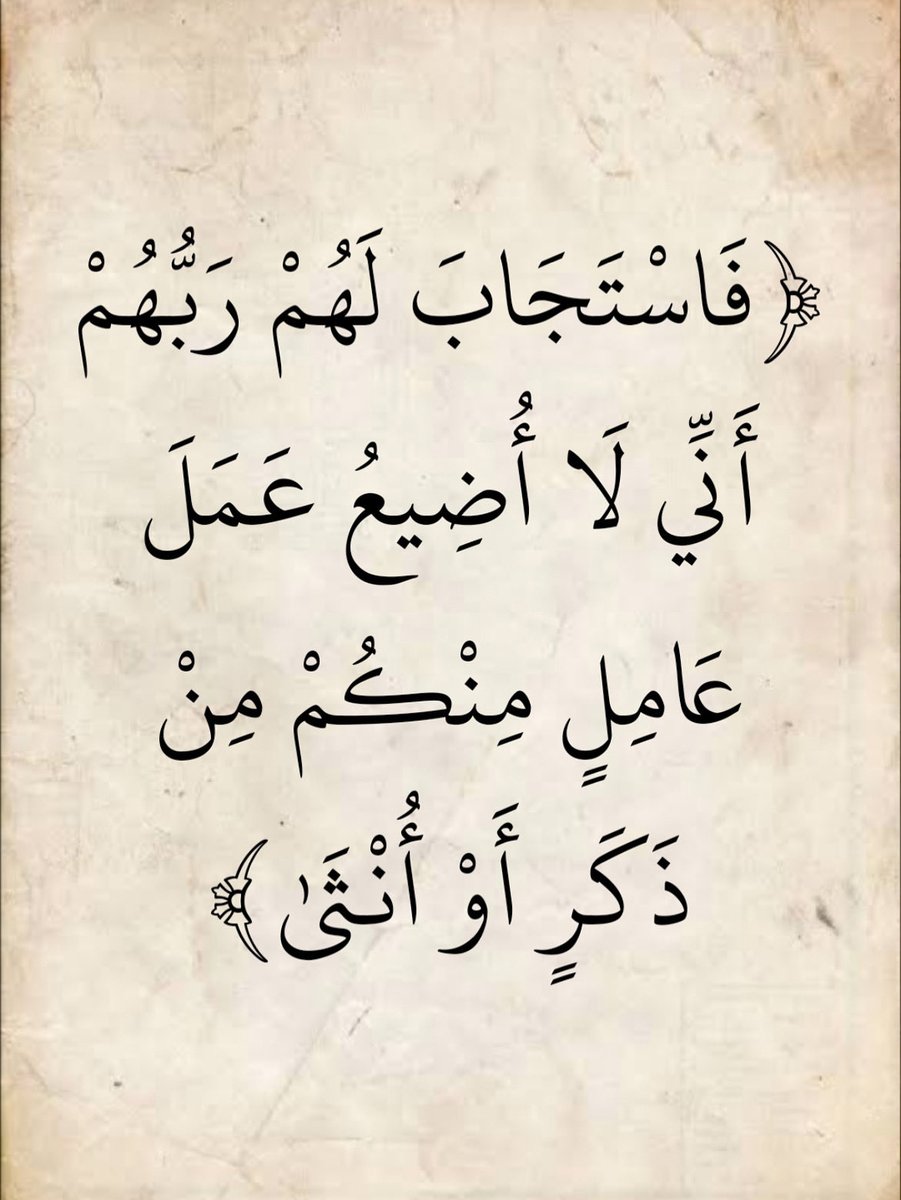 ﴿فَاسْتَجَابَ لَهُمْ رَبُّهُمْ
أَنِّي لَا أُضِيعُ عَمَلَ
عَامِلٍ مِنْكُمْ مِنْ
ذَكَرٍ أَوْ أُنْثَىٰ﴾